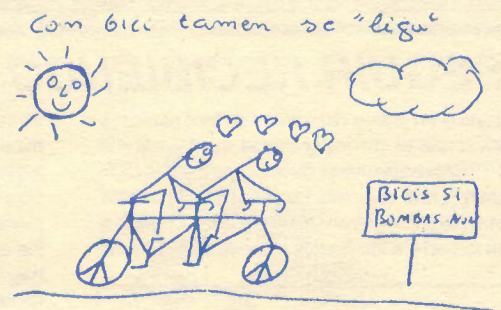 Con bici tamen se "liga"
BICIS SI
BOMBAS NON